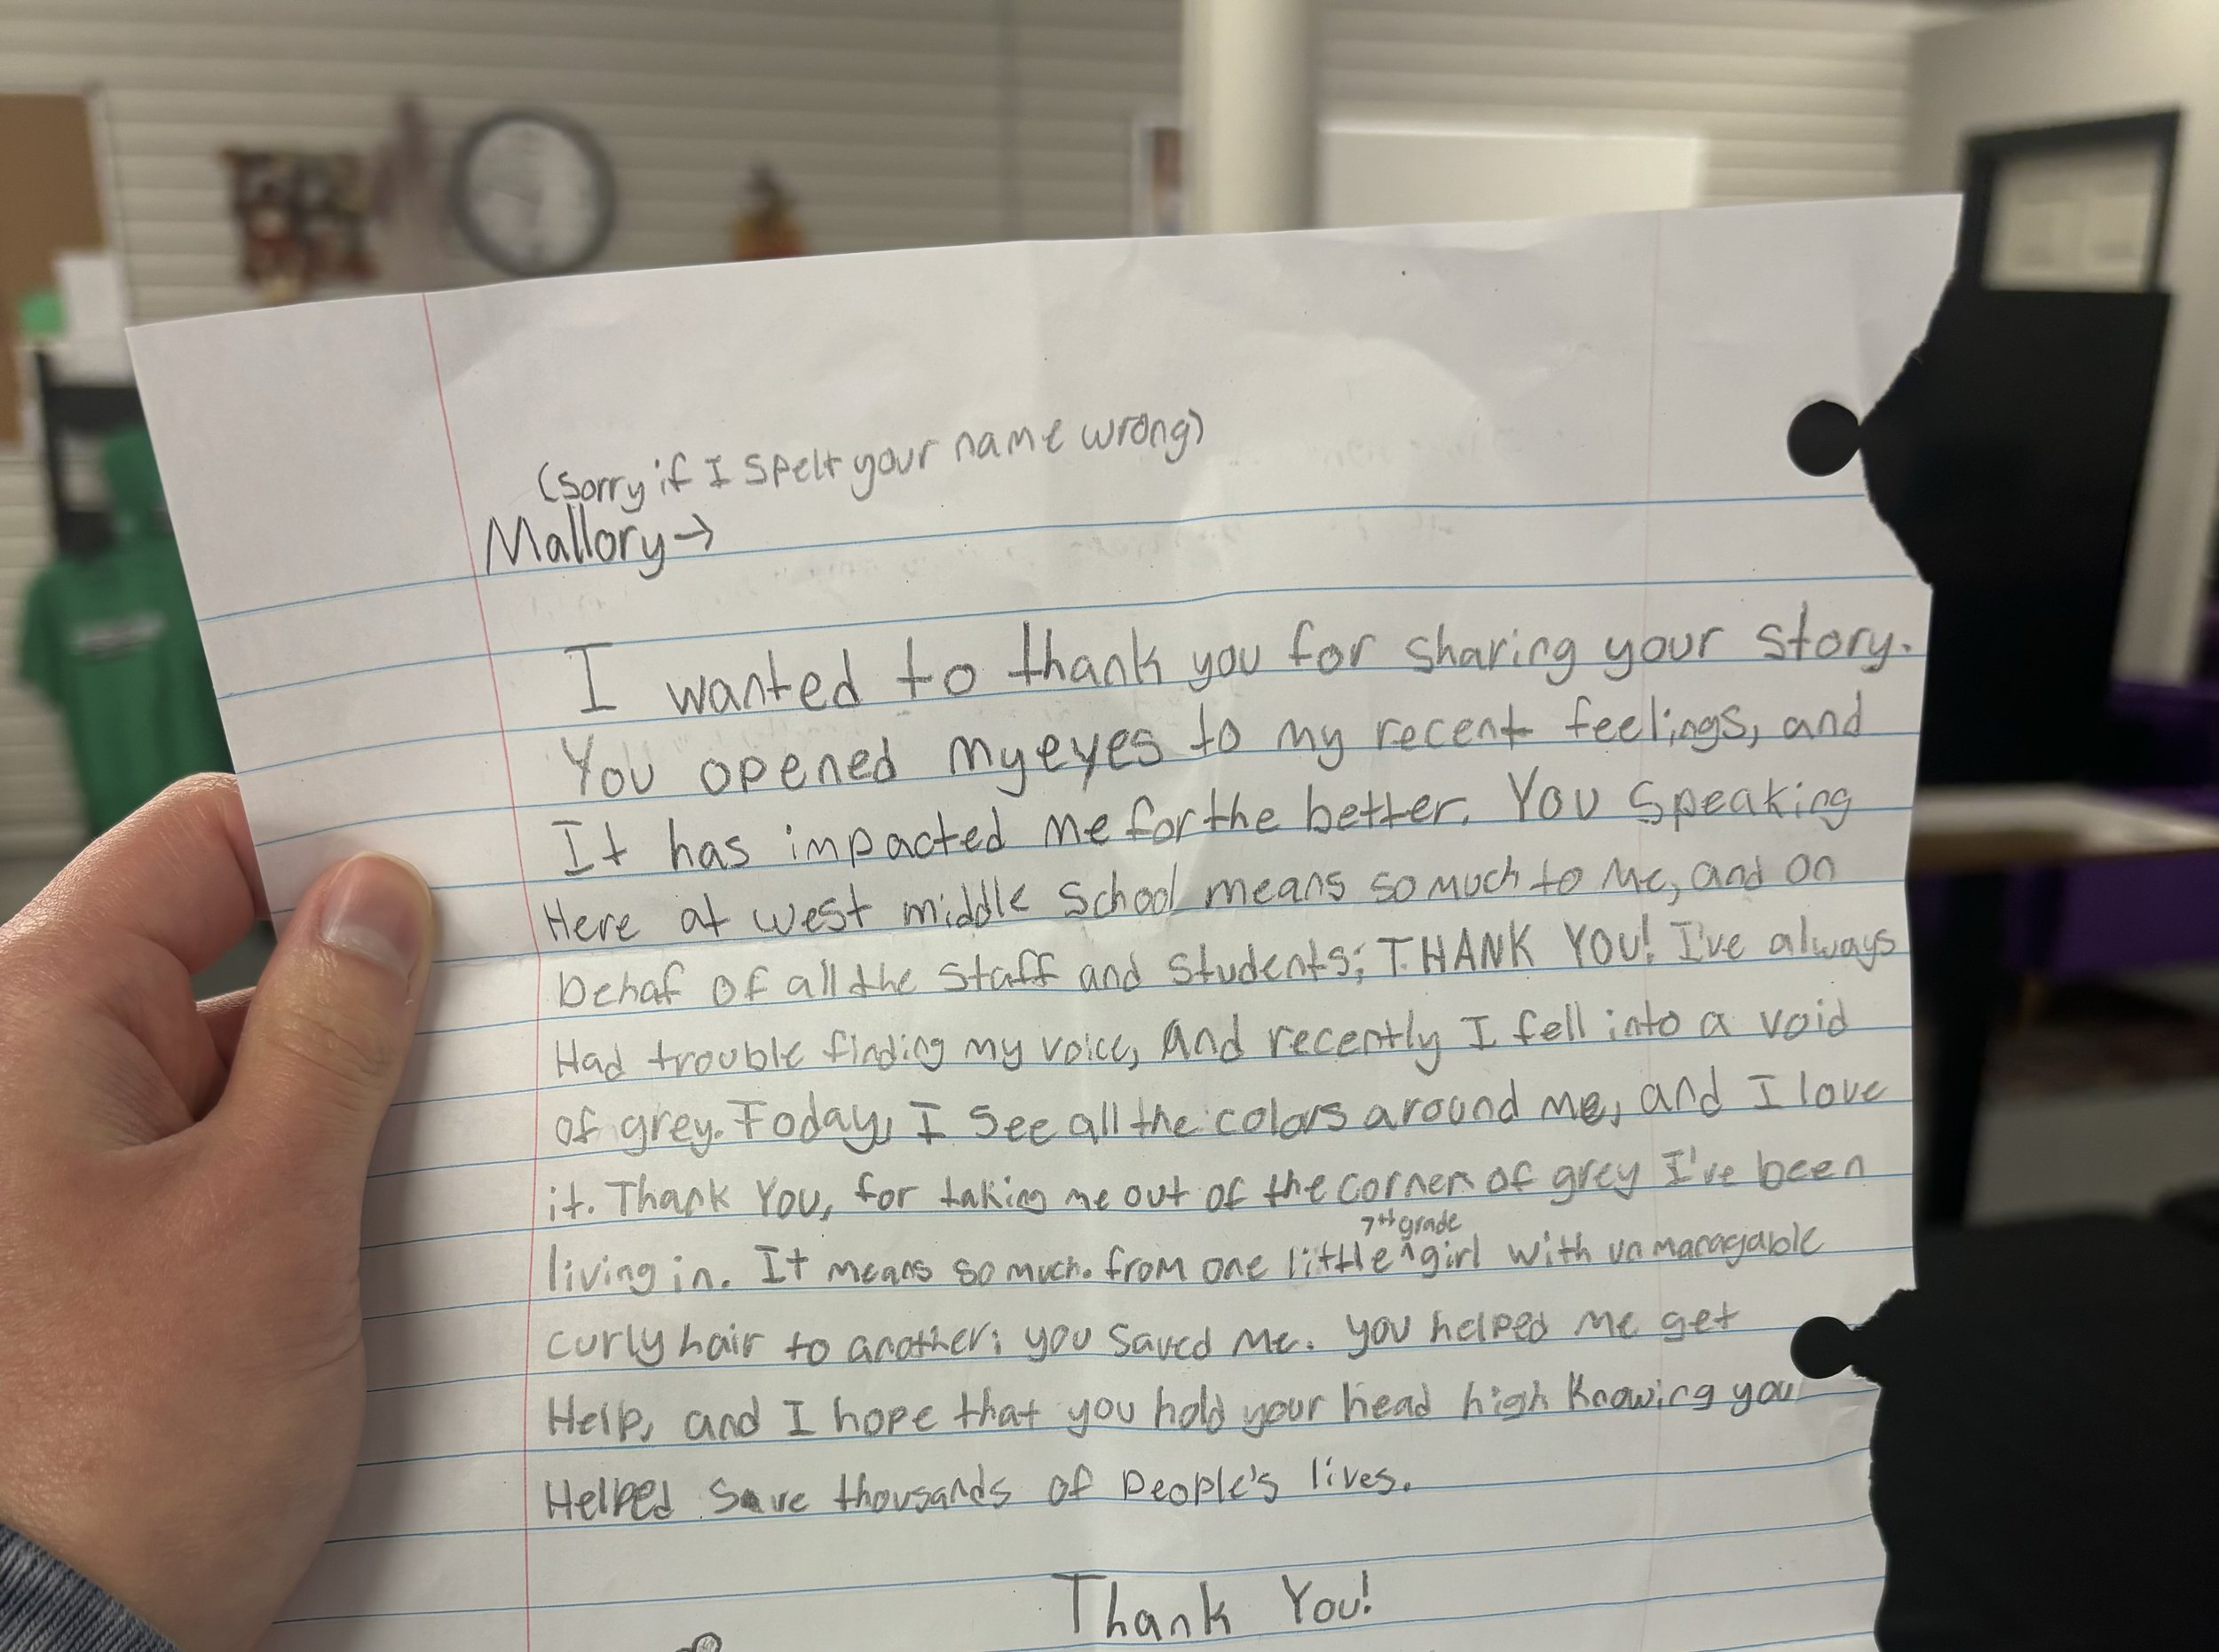 (Sorry if I spelt your name wrong)
Mallory→
I wanted to thank you for sharing your story.
You opened my eyes to my recent feelings, and
It has impacted me for the better. You speaking
Here at west middle school means so much to me, and on
behaf of all the staff and students; THANK YOU! I've always
Had trouble finding my voice, and recently I fell into a void
of grey. Today, I see all the colors around me, and I love
it. Thank You, for taking me out of the corner of grey I've been
7th grade
living in. It means so much. from one little ^ girl with unmanagable
curly hair to another: you saved me. you helped me get
Help, and I hope that you hold your head high knowing you
Helped save thousands of people's lives.
Thank You!